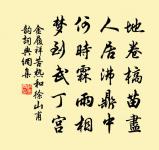 地卷槁苗盡
人居沸鼎中
何時霖雨相
夢到武丁宮
金履祥苦熱和徐山甫
韵詞典網集